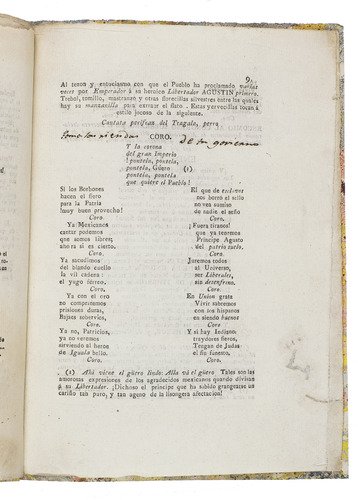 9.
Al teson y entusiasmo con que el Pueblo ha proclamado varias
veces por Emperador á su heroico Libertador AGUSTIN primero.
Trebol, tomillo, mastranzo y otras florecillas silvestres entre las quales
hay su manzanilla para extraer el flato. Estas yervecillas tocan á
estilo jocoso de la siguiente.
Cantata porifean del Tragala, perra
CORO.
Y la corona
del gran Imperio
¡ pontela, pontela,
pontela, Güero (1)
pontela, pontela
que quiere el Pueblo!
Si los Borbones
hacen el fiero
para la Patria
¡muy buen provecho!
Coro.
Ya Mexicanos
cantar podemos
que somos libres;
ahora sí es cierto.
Coro.
Ya sacudimos
del blando cuello
la vil cadena
el yugo férreo.
Coro.
Ya con el oro
no compraremos
prisiones duras,
Bajaes sobervios,
Coro.
Ya no, Patricios,
ya no veremos
sirviendo al heroe
de Iguala bello.
Coro.
El que de esclavos
nos borró el sello
no vea sumiso
de nadie el seño
Coro.
¡Fuera tiranos!
que ya tenemos
Principe Agusto
del patrio suelo.
Coro.
Juremos todos
al Universo,
ser Liberales,
sin desenfreno.
Coro.
En Union grata
Vivir sabremos
con los hispanos
en siendo buenos
Coro.
Y si hay Indianos
traydores fieros,
Tengan de Judas
el fin funesto.
Coro.
(1) Ahí viene el güero lindo: Alla vá el güero Tales son las
amorosas expresiones de los agradecidos mexicanos quando divisan
á su Libertador. ¡Dichoso el principe que ha sabido grangearse un
cariño tan puro, y tan ageno de la lisongera afectacion!